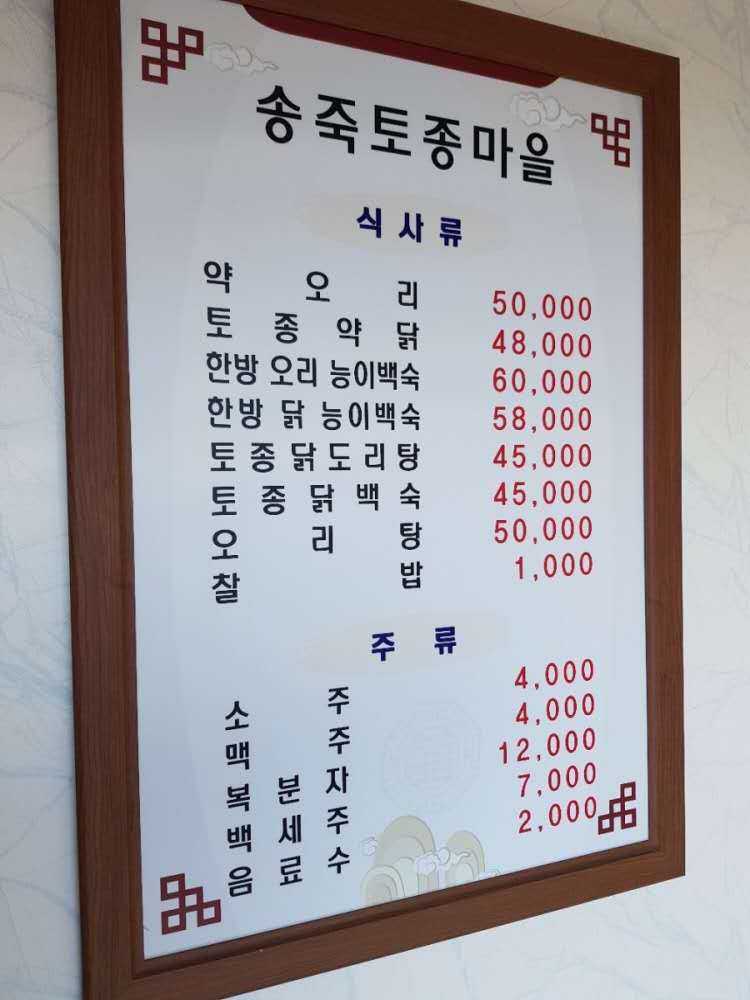 송죽토종마을
식사류
약오리 50,000
토종약닭 48,000
한방 오리 능이백숙 60,000
한방 닭 능이백숙 58,000
토종닭도리탕 45,000
토종닭백숙 45,000
오리탕 50,000
찰밥 1,000
주류
소주 4,000
맥주 4,000
복분자 12,000
백세주 7,000
음료수 2,000